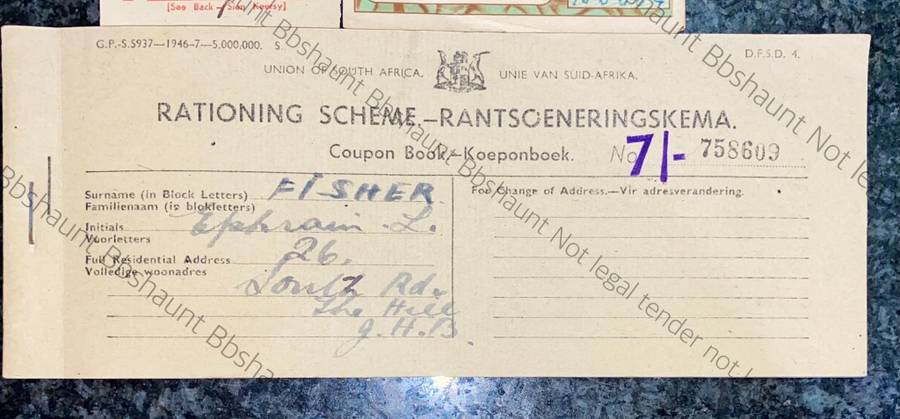 [See Back – Sien Keersy]
G.P.-S.5937—1946-7—5,000,000. S.
D.F.S.D. 4.
UNION OF SOUTH AFRICA. UNIE VAN SUID-AFRIKA.
RATIONING SCHEME.—RANTSOENERINGSKEMA.
Coupon Book.—Koeponboek. No 7/- 758609
Surname (in Block Letters) FISHER
Familienaam (in blokletters)
Initials Ephraim . L.
Voorletters
Full Residential Address 26.
Volledige woonadres
South Rd.
The Hill
J.H.B.
For Change of Address.—Vir adresverandering.
Bbshaunt Not legal tender not